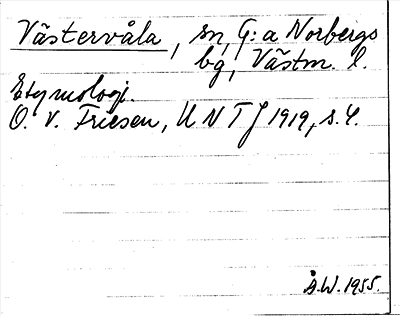 Västervåla, sn, G:a Norbergs
bg, Västm. l.
Etymologi.
O. v. Friesen, UNTJ 1919, s. 4.
Å.W. 1955.